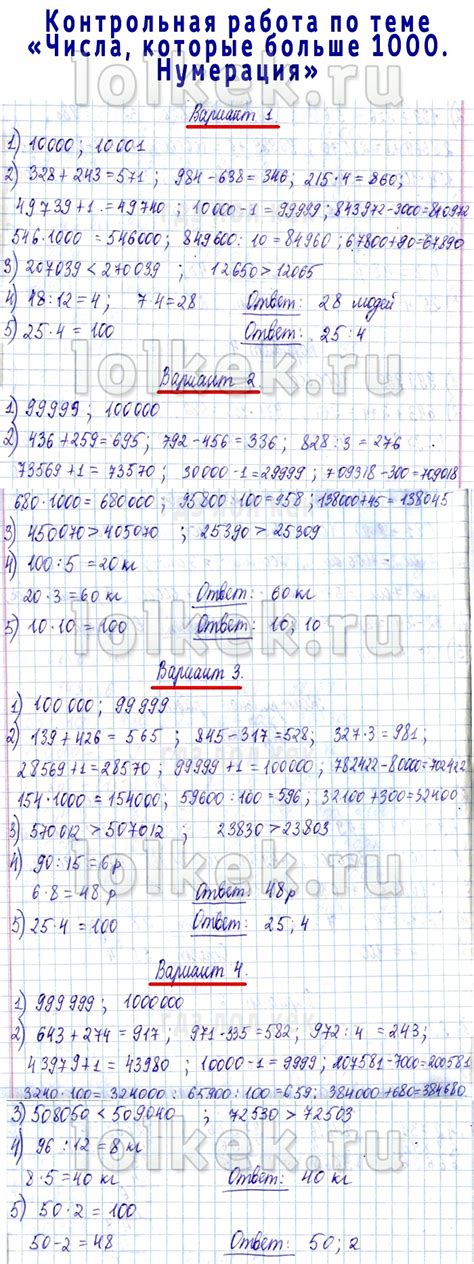 Контрольная работа по теме
«Числа, которые больше 1000.
Нумерация»
lolkek.ru
Вариант 1.
1) 10000; 10001
2) 328+243=571; 984-638=346; 215·4=860;
49739+1=49740; 10000-1=99989; 843972-3000=840972
546·1000=546000; 849600:10=84960; 67800+90=67890
3) 207039<270039; 12650>12065
4) 48:12=4; 7·4=28 Ответ: 28 людей
5) 25·4=100 Ответ: 25:4
lolkek.ru
Вариант 2
1) 99999; 100000
2) 436+259=695; 792-456=336; 828:3=276
73569+1=73570; 30000-1=29999; 709318-300=709018
680·1000=680000; 95800:100=958; 138000+45=138045
3) 450070>405070; 25390>25309
4) 100:5=20кг
20·3=60 кг Ответ: 60 кг
5) 10·10=100 Ответ: 10; 10
lolkek.ru
Вариант 3.
1) 100000; 99999
2) 139+426=565; 845-317=528; 327·3=981;
28569+1=28570; 99999+1=100000; 782422-8000=702422
154·1000=154000; 59600:100=596; 32100+300=32400
3) 570012>507012; 23830>23803
4) 90:15=6р
6·8=48р Ответ: 48р
5) 25·4=100 Ответ: 25; 4
lolkek.ru
Вариант 4
1) 999999; 1000000
2) 643+274=917; 971-335=582; 972:4=243;
43979+1=43980; 10000-1=9999; 207581-7000=200581
3240·100=324000; 65900:100=659; 384000+680=384680
3) 508050<509040; 72530>72503
4) 96:12=8кг
8·5=40кг Ответ: 40 кг
5) 50·2=100
50-2=48 Ответ: 50; 2